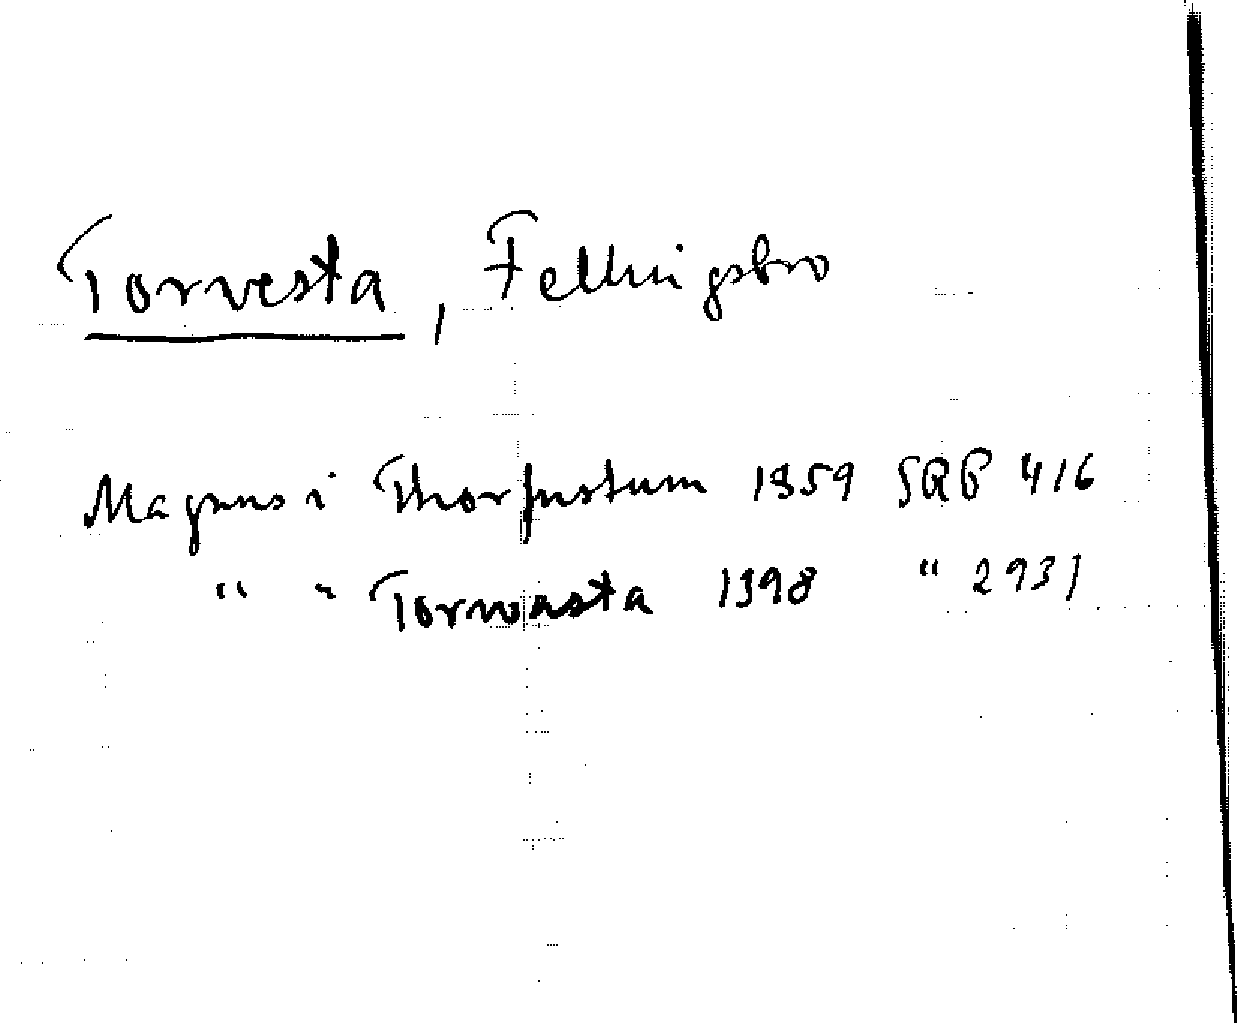 Torvesta, Fellingsbro
Magnus i Thorfustum 1359 SRP 416
" " Torwasta 1398 " 2931